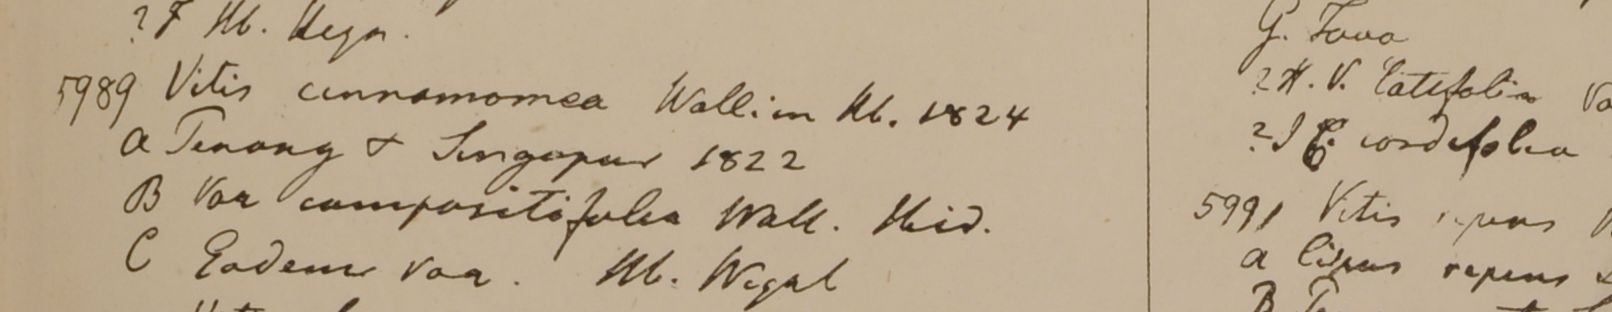 ? F Hb. Heyn.
5989 Vitis cinnamomea Wall. in Hb. 1824
a Penang & Singapur 1822
B Var compositifolia Wall. Hid.
C Eadem var. Hb. Wight
G. Java
? H. V. latifolia Va
? I C. cordifolia
5991 Vitis repens
a Cissus repens
B